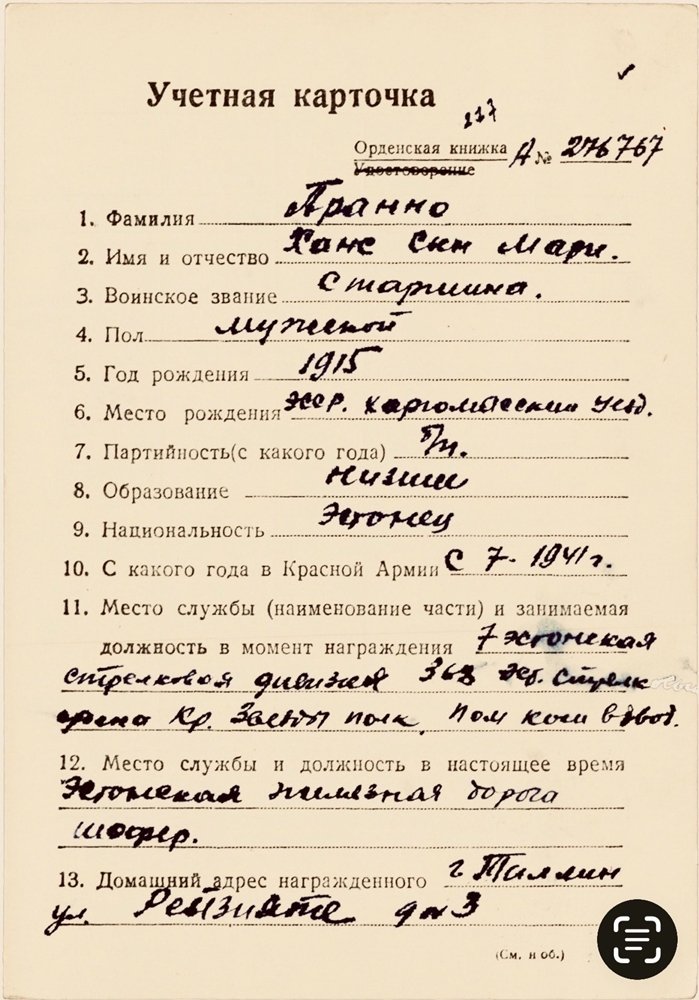 Учетная карточка
Орденская книжка А № 276767
Удостоверение
1. Фамилия Пранно
2. Имя и отчество Ханс сын Мари.
3. Воинское звание Старшина.
4. Пол мужской
5. Год рождения 1915
6. Место рождения уезд.
7. Партийность(с какого года) б/п.
8. Образование низшее
9. Национальность Эстонец
10. С какого года в Красной Армии С 7-1941 г.
11. Место службы (наименование части) и занимаемая
должность в момент награждения 7 эстонская
стрелковая дивизия стрелк
Кр. Звезды полк, пом ком взвод.
12. Место службы и должность в настоящее время
Эстонская железная дорога
шофер.
13. Домашний адрес награжденного г Таллин
ул. д № 3
(См. н об.)